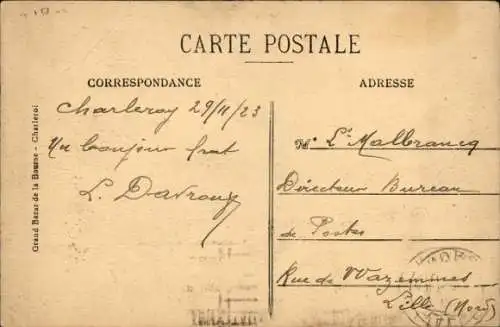 CARTE POSTALE
CORRESPONDANCE
Charleroy 29/11/23
Un bonjour
L. Davroux
Grand Bazar de la Bourse - Charleroi
ADRESSE
Mr Ls Malbrancq
Directeur Bureau
de Postes
Rue de Wazemmes
Lille (Nord)